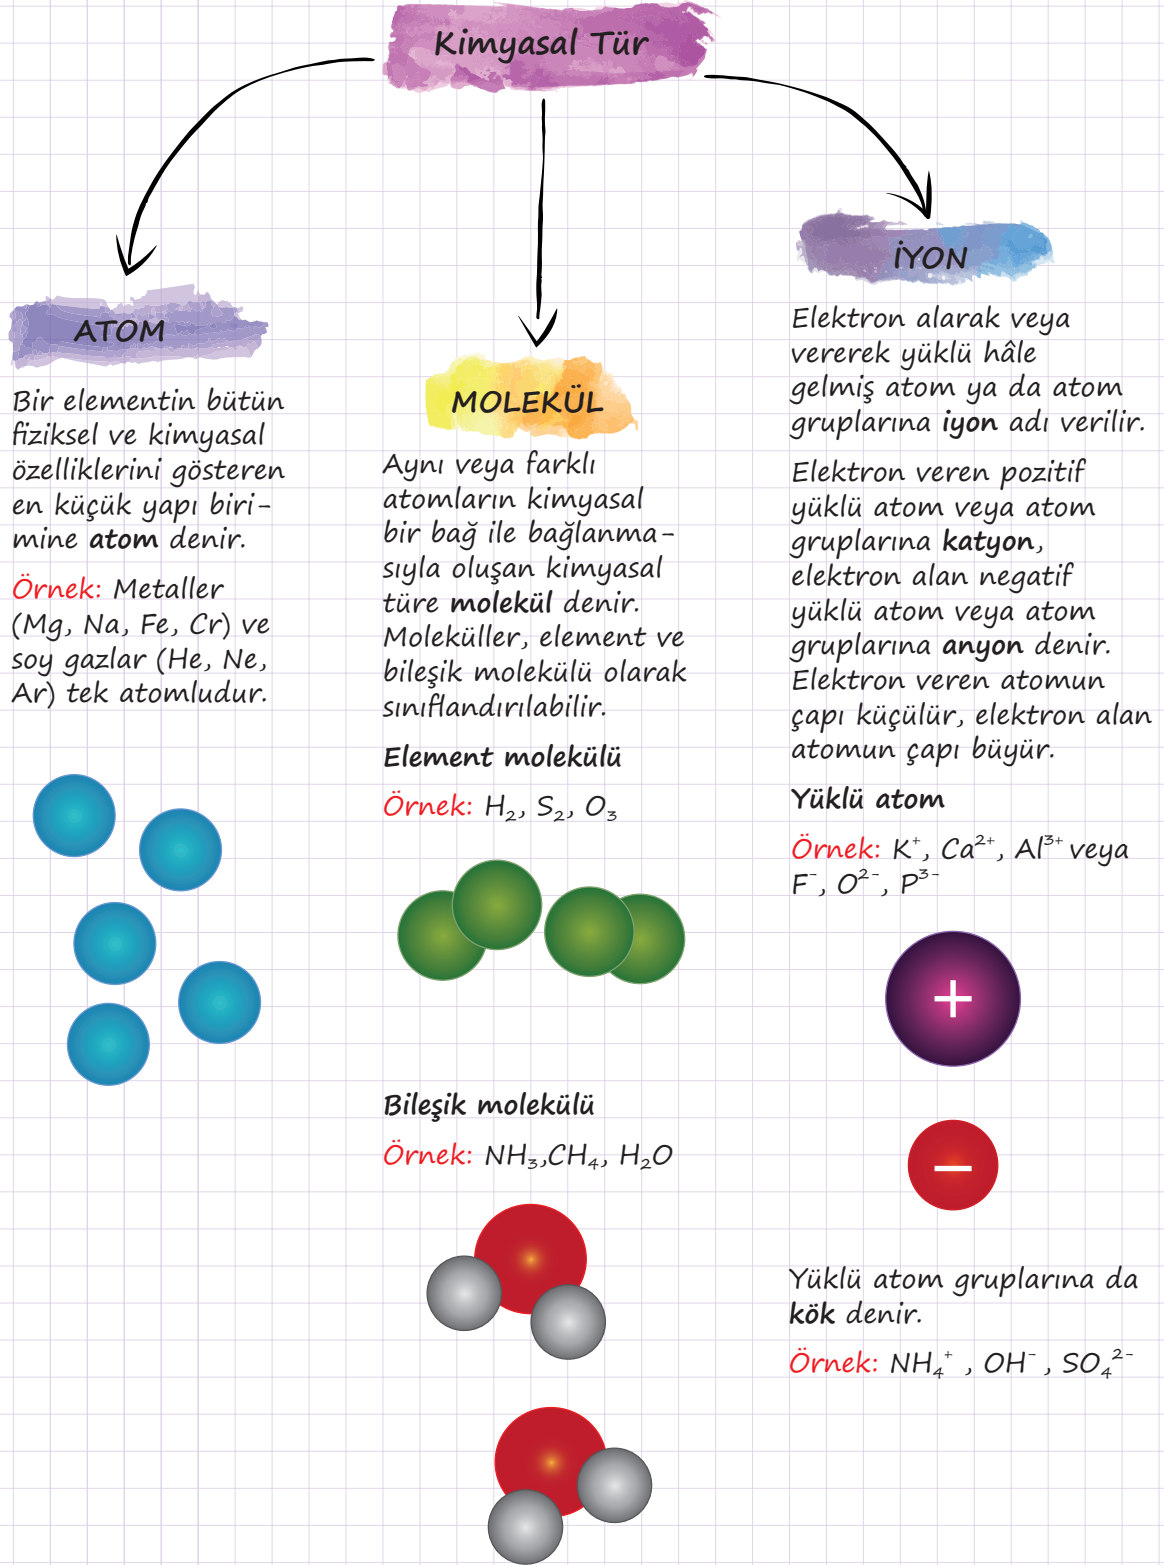 Kimyasal Tür
ATOM
Bir elementin bütün
fiziksel ve kimyasal
özelliklerini gösteren
en küçük yapı biri-
mine atom denir.
Örnek: Metaller
(Mg, Na, Fe, Cr) ve
soy gazlar (He, Ne,
Ar) tek atomludur.
MOLEKÜL
Aynı veya farklı
atomların kimyasal
bir bağ ile bağlanma-
sıyla oluşan kimyasal
türe molekül denir.
Moleküller, element ve
bileşik molekülü olarak
sınıflandırılabilir.
Element molekülü
Örnek: H₂, S₂, O₃
Bileşik molekülü
Örnek: NH₃,CH₄, H₂O
İYON
Elektron alarak veya
vererek yüklü hâle
gelmiş atom ya da atom
gruplarına iyon adı verilir.
Elektron veren pozitif
yüklü atom veya atom
gruplarına katyon,
elektron alan negatif
yüklü atom veya atom
gruplarına anyon denir.
Elektron veren atomun
çapı küçülür, elektron alan
atomun çapı büyür.
Yüklü atom
Örnek: K⁺, Ca²⁺, Al³⁺ veya
F⁻, O²⁻, P³⁻
+
−
Yüklü atom gruplarına da
kök denir.
Örnek: NH₄⁺ , OH⁻ , SO₄²⁻